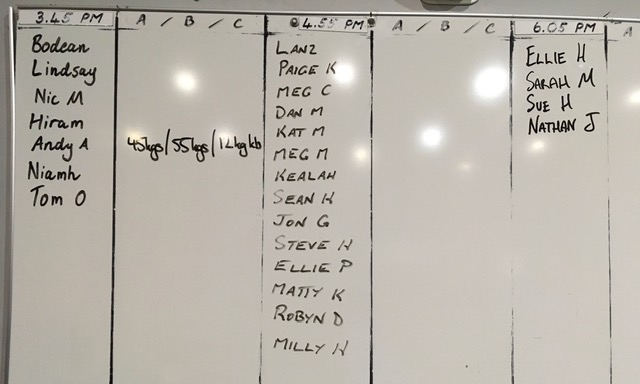 3.45 PM
A / B / C
4.55 PM
A / B / C
6.05 PM
A
Bodean
Lindsay
Nic M
Hiram
Andy A 45kgs/55kgs/12kg kb
Niamh
Tom O
LANZ
PAIGE K
MEG C
DAN M
KAT M
MEG M
KEALAH
SEAN K
JON G
STEVE H
ELLIE P
MATTY K
ROBYN D
MILLY H
ELLIE H
SARAH M
SUE H
NATHAN J